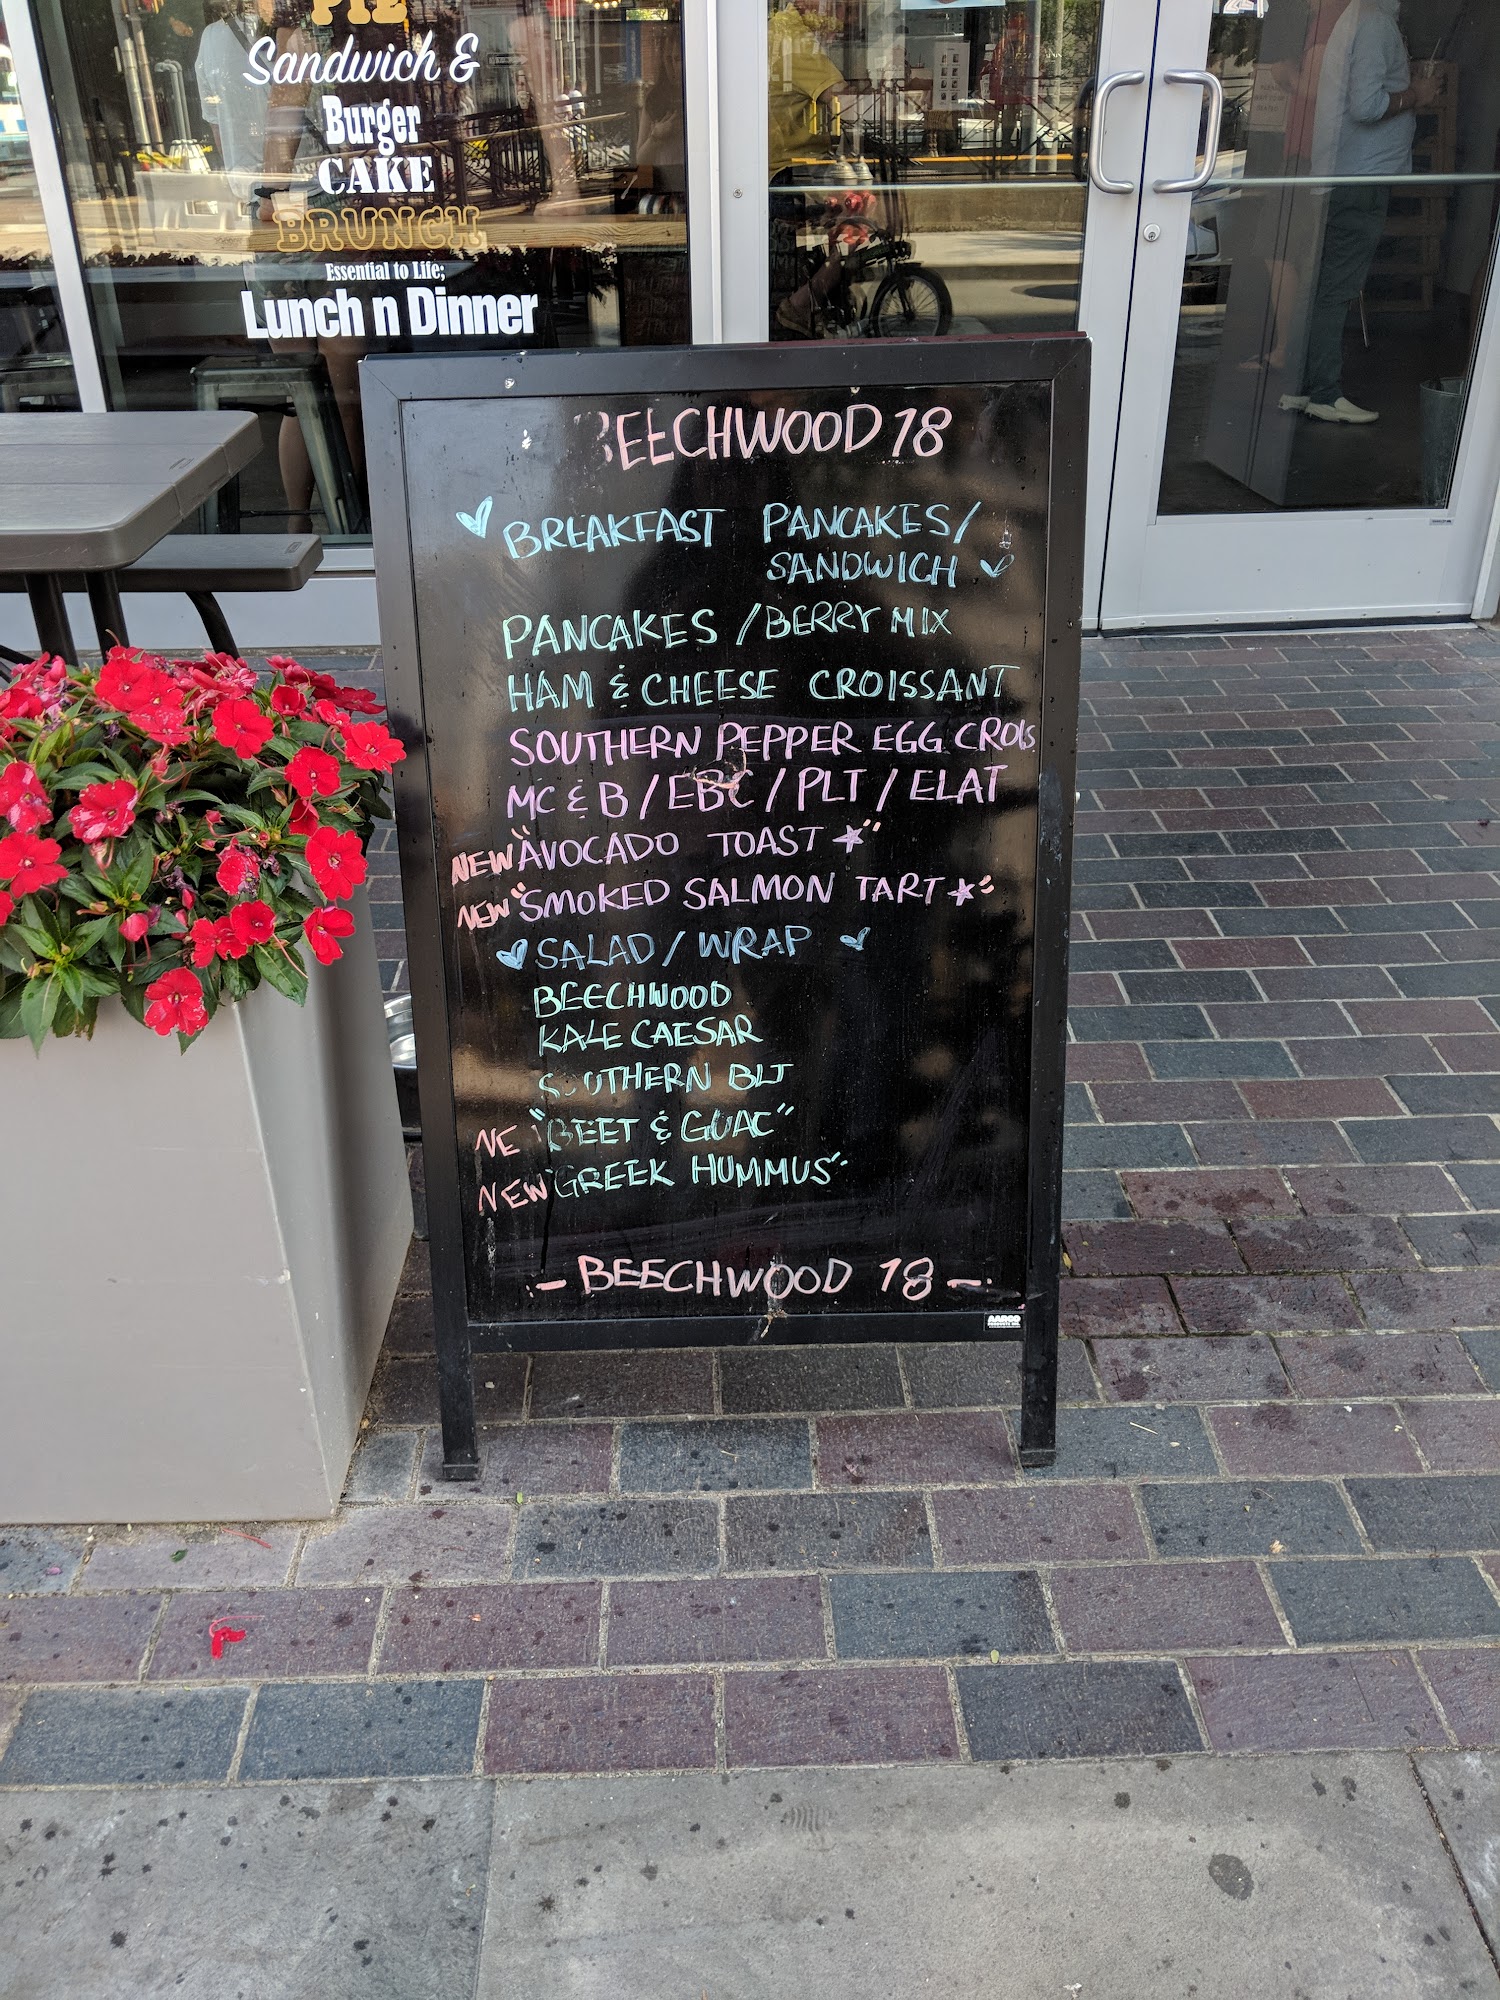 PIE
Sandwich &
Burger
CAKE
BRUNCH
Essential to Life;
Lunch n Dinner
BEECHWOOD 18
BREAKFAST PANCAKES/
SANDWICH
PANCAKES / BERRY MIX
HAM & CHEESE CROISSANT
SOUTHERN PEPPER EGG CROIS
MC & B / EBC / PLT / ELAT
NEW "AVOCADO TOAST"
NEW "SMOKED SALMON TART"
SALAD / WRAP
BEECHWOOD
KALE CAESAR
SOUTHERN BLT
NE "BEET & GUAC"
NEW "GREEK HUMMUS"
- BEECHWOOD 18 -
AARCO